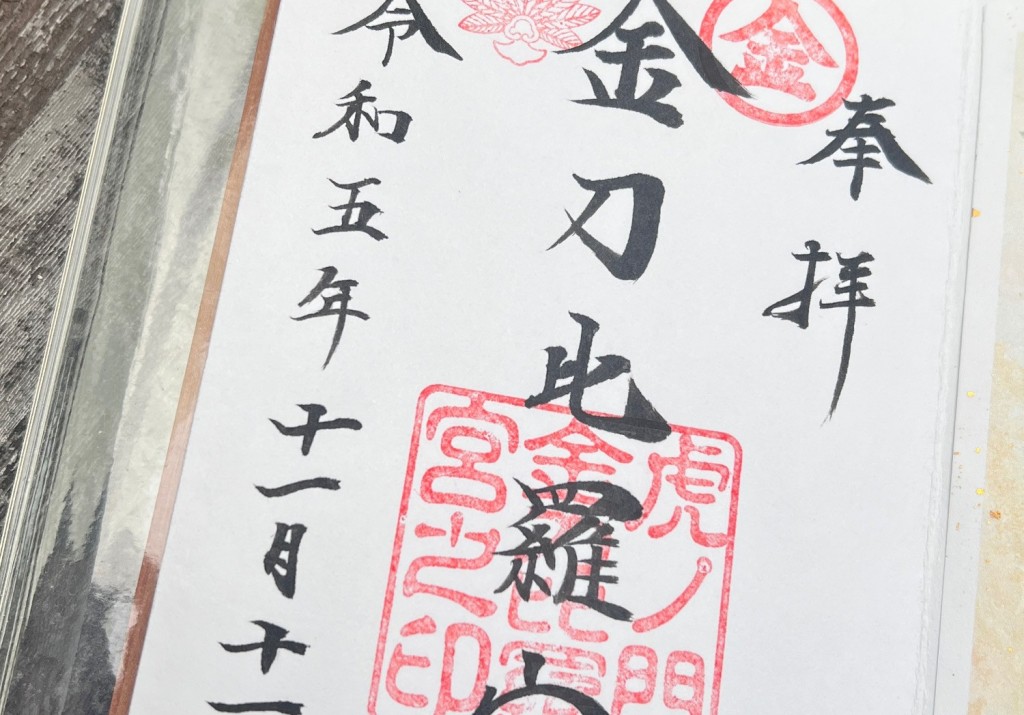 奉拝
金
金刀比羅
令和五年十一月十一
虎ノ門
金刀比羅
宮之印